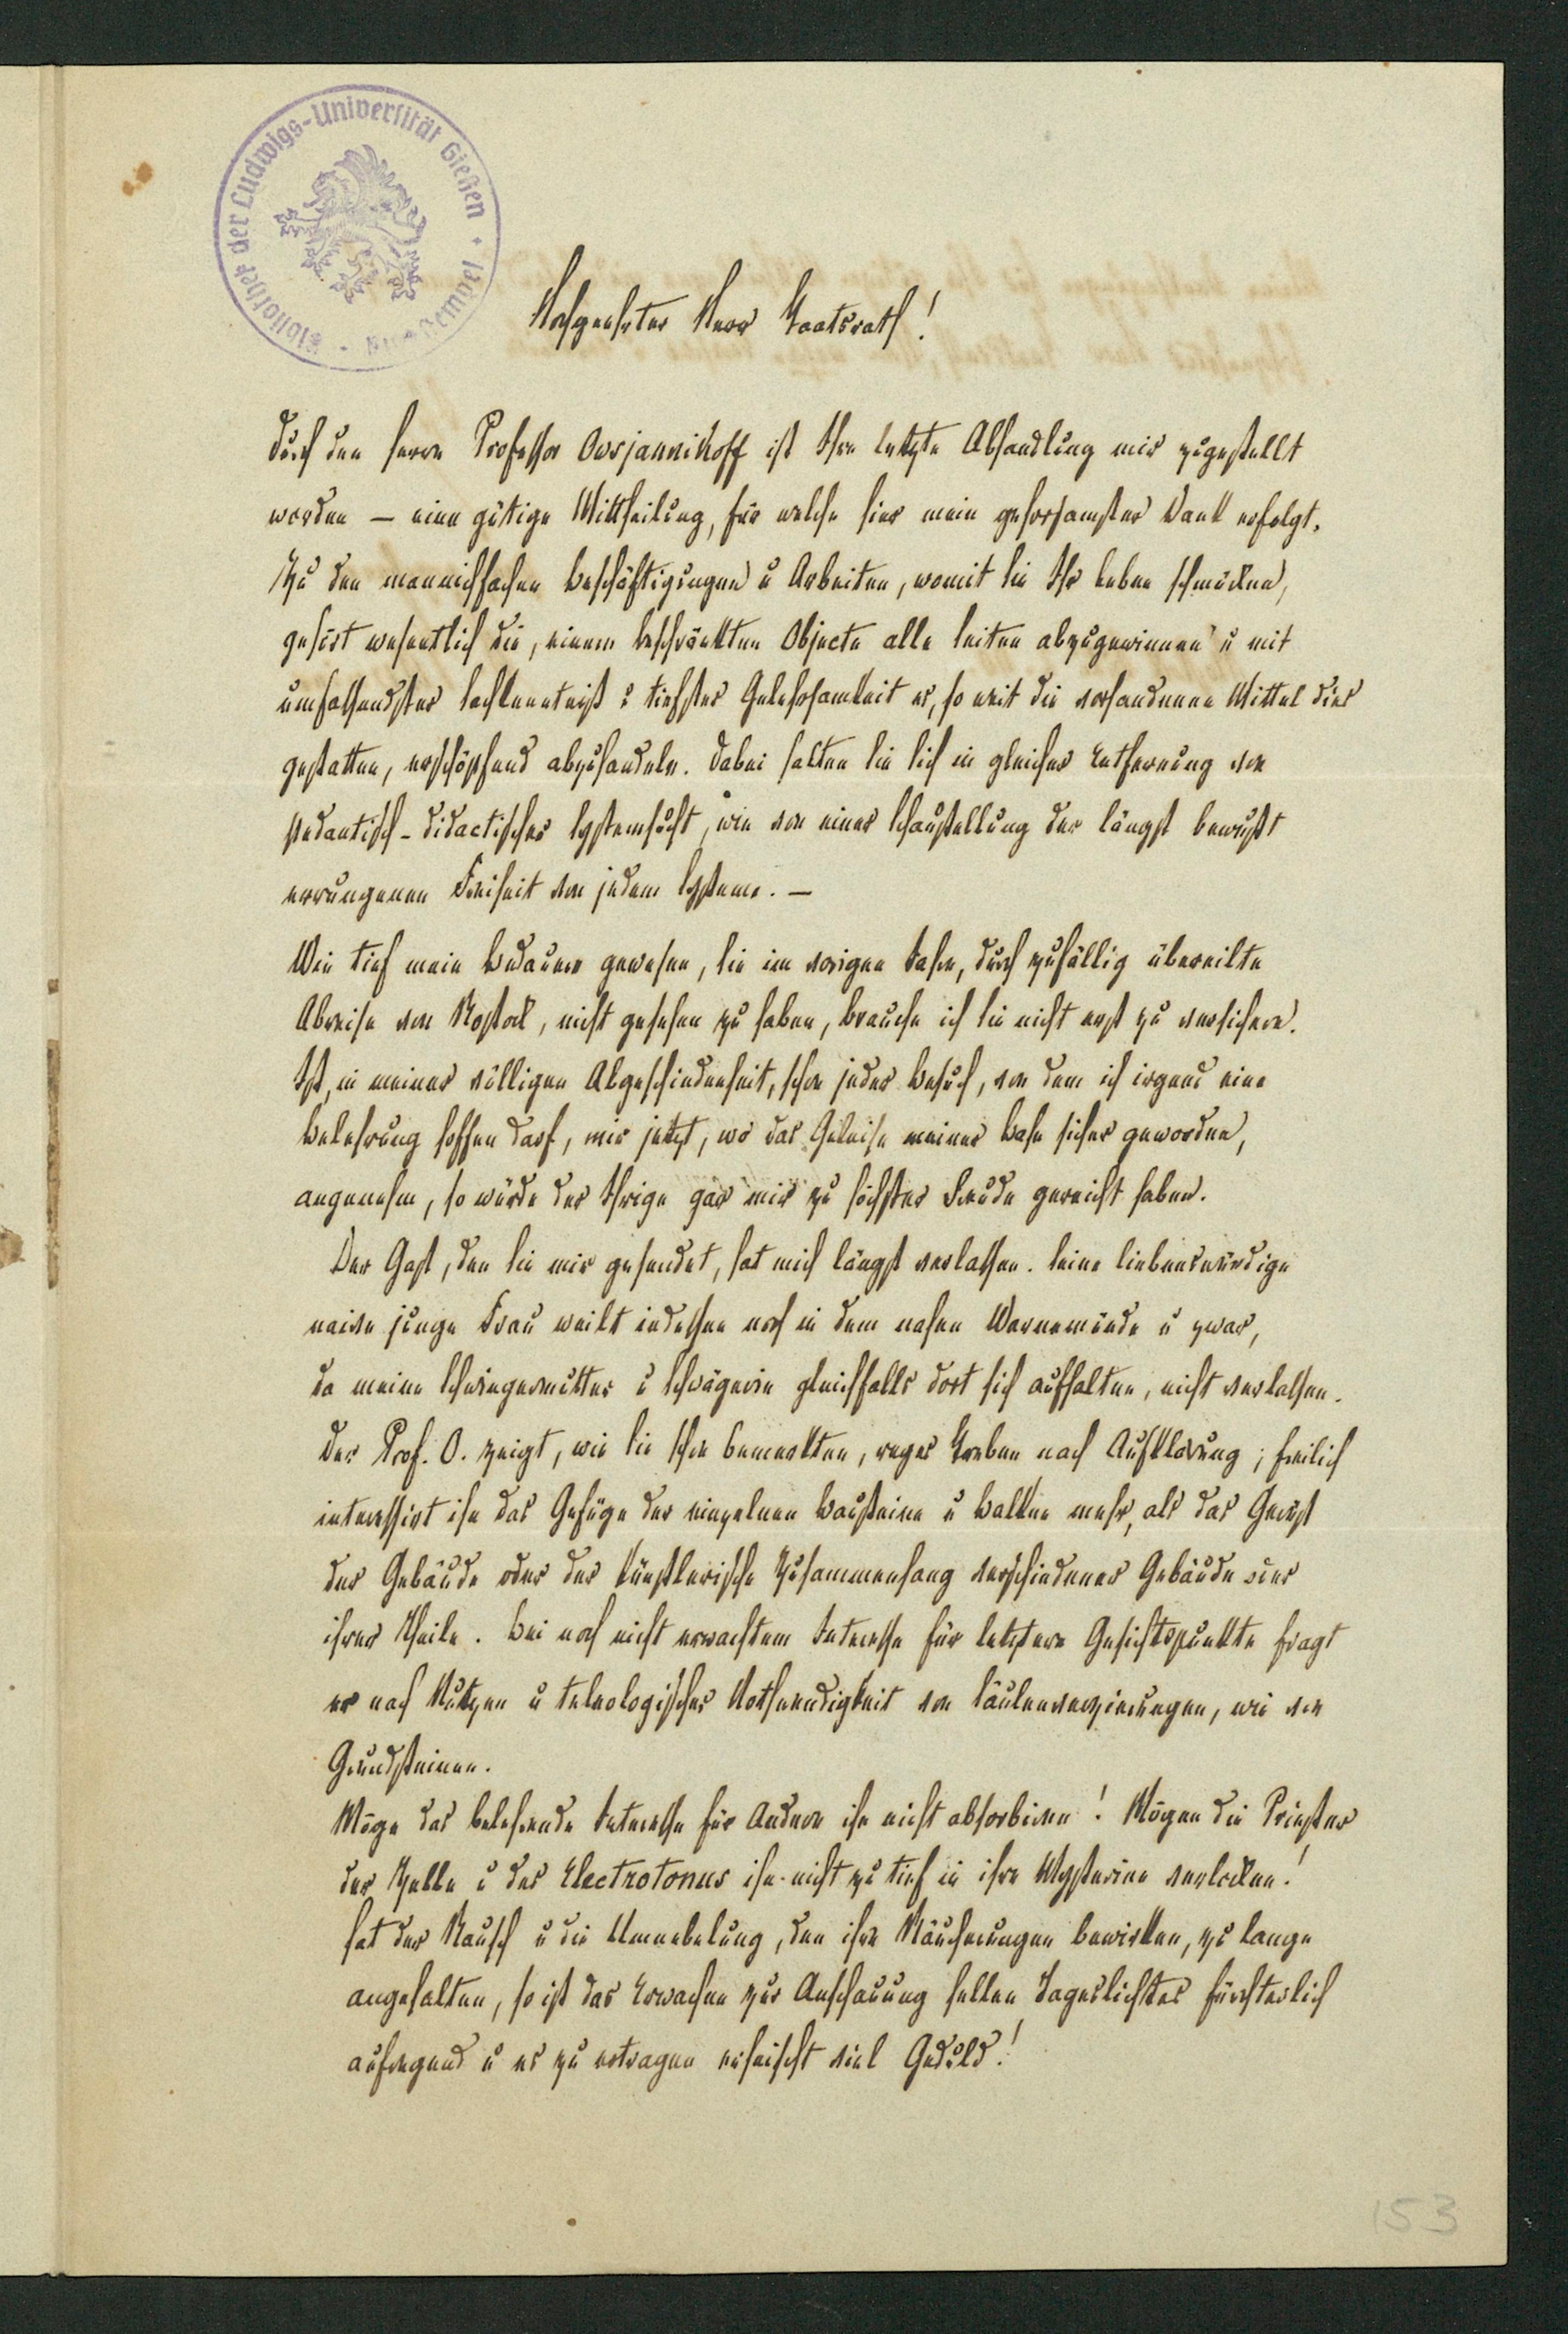 Bibliothek der Ludwigs-Universität Gießen
Hochgeehrter Herr Staatsrath!
Durch den Herrn Professor Owsjannikoff ist Ihre letzte Abhandlung mir zugestellt
worden – eine gütige Mittheilung, für welche hier mein gehorsamster Dank erfolgt.
Zu den mannichfachen Beschäftigungen u Arbeiten, womit Sie Ihr Leben schmücken,
gehört wesentlich die, einem beschränkten Objecte alle Seiten abzugewinnen u mit
umfassendster Sachkenntniß u tiefster Gelehrsamkeit es, so weit die vorhandenen Mittel dies
gestatten, erschöpfend abzuhandeln. Dabei halten Sie sich in gleicher Entfernung von
pedantisch-didactischer Systemsucht, wie von einer Schaustellung der längst bewußt
errungenen Freiheit von jedem Systeme. –
Wie tief mein Bedauern gewesen, Sie im vorigen Jahre, durch zufällig übereilte
Abreise von Rostock, nicht gesehen zu haben, brauche ich Sie nicht erst zu versichern.
Ist, in meiner völligen Abgeschiedenheit, schon jeder Besuch, von dem ich irgend eine
Belehrung hoffen darf, mir jetzt, wo das Geleise meiner Bahn sicher geworden,
angenehm, so würde der Ihrige gar mir zu höchster Freude gereicht haben.
Der Gast, den Sie mir gesendet, hat mich längst verlassen. Seine liebenswürdige
naive junge Frau weilt indessen noch in dem nahen Warnemünde u zwar,
da meine Schwiegermutter u Schwägerin gleichfalls dort sich aufhalten, nicht verlassen.
Der Prof. O. zeigt, wie Sie schon bemerkten, reges Streben nach Aufklärung; freilich
interessirt ihn das Gefüge der einzelnen Bausteine u Balken mehr, als das Gerüst
der Gebäude oder der künstlerische Zusammenhang verschiedener Gebäude oder
ihrer Theile. Bei noch nicht erwachtem Interesse für letztere Gesichtspunkte fragt
er nach Nutzen u teleologischer Nothwendigkeit von Säulenverzierungen, wie von
Grundsteinen.
Möge das belehrende Interesse für Andere ihn nicht absorbiren! Mögen die Priester
der Zelle u des Electrotonus ihn nicht zu tief in ihre Mysterien verlocken!
Hat der Rausch u die Umnebelung, den ihre Räucherungen bewirken, zu lange
angehalten, so ist das Erwachen zur Anschauung hellen Tageslichtes fürchterlich
aufregend u es zu ertragen erheischt viel Geduld!
153